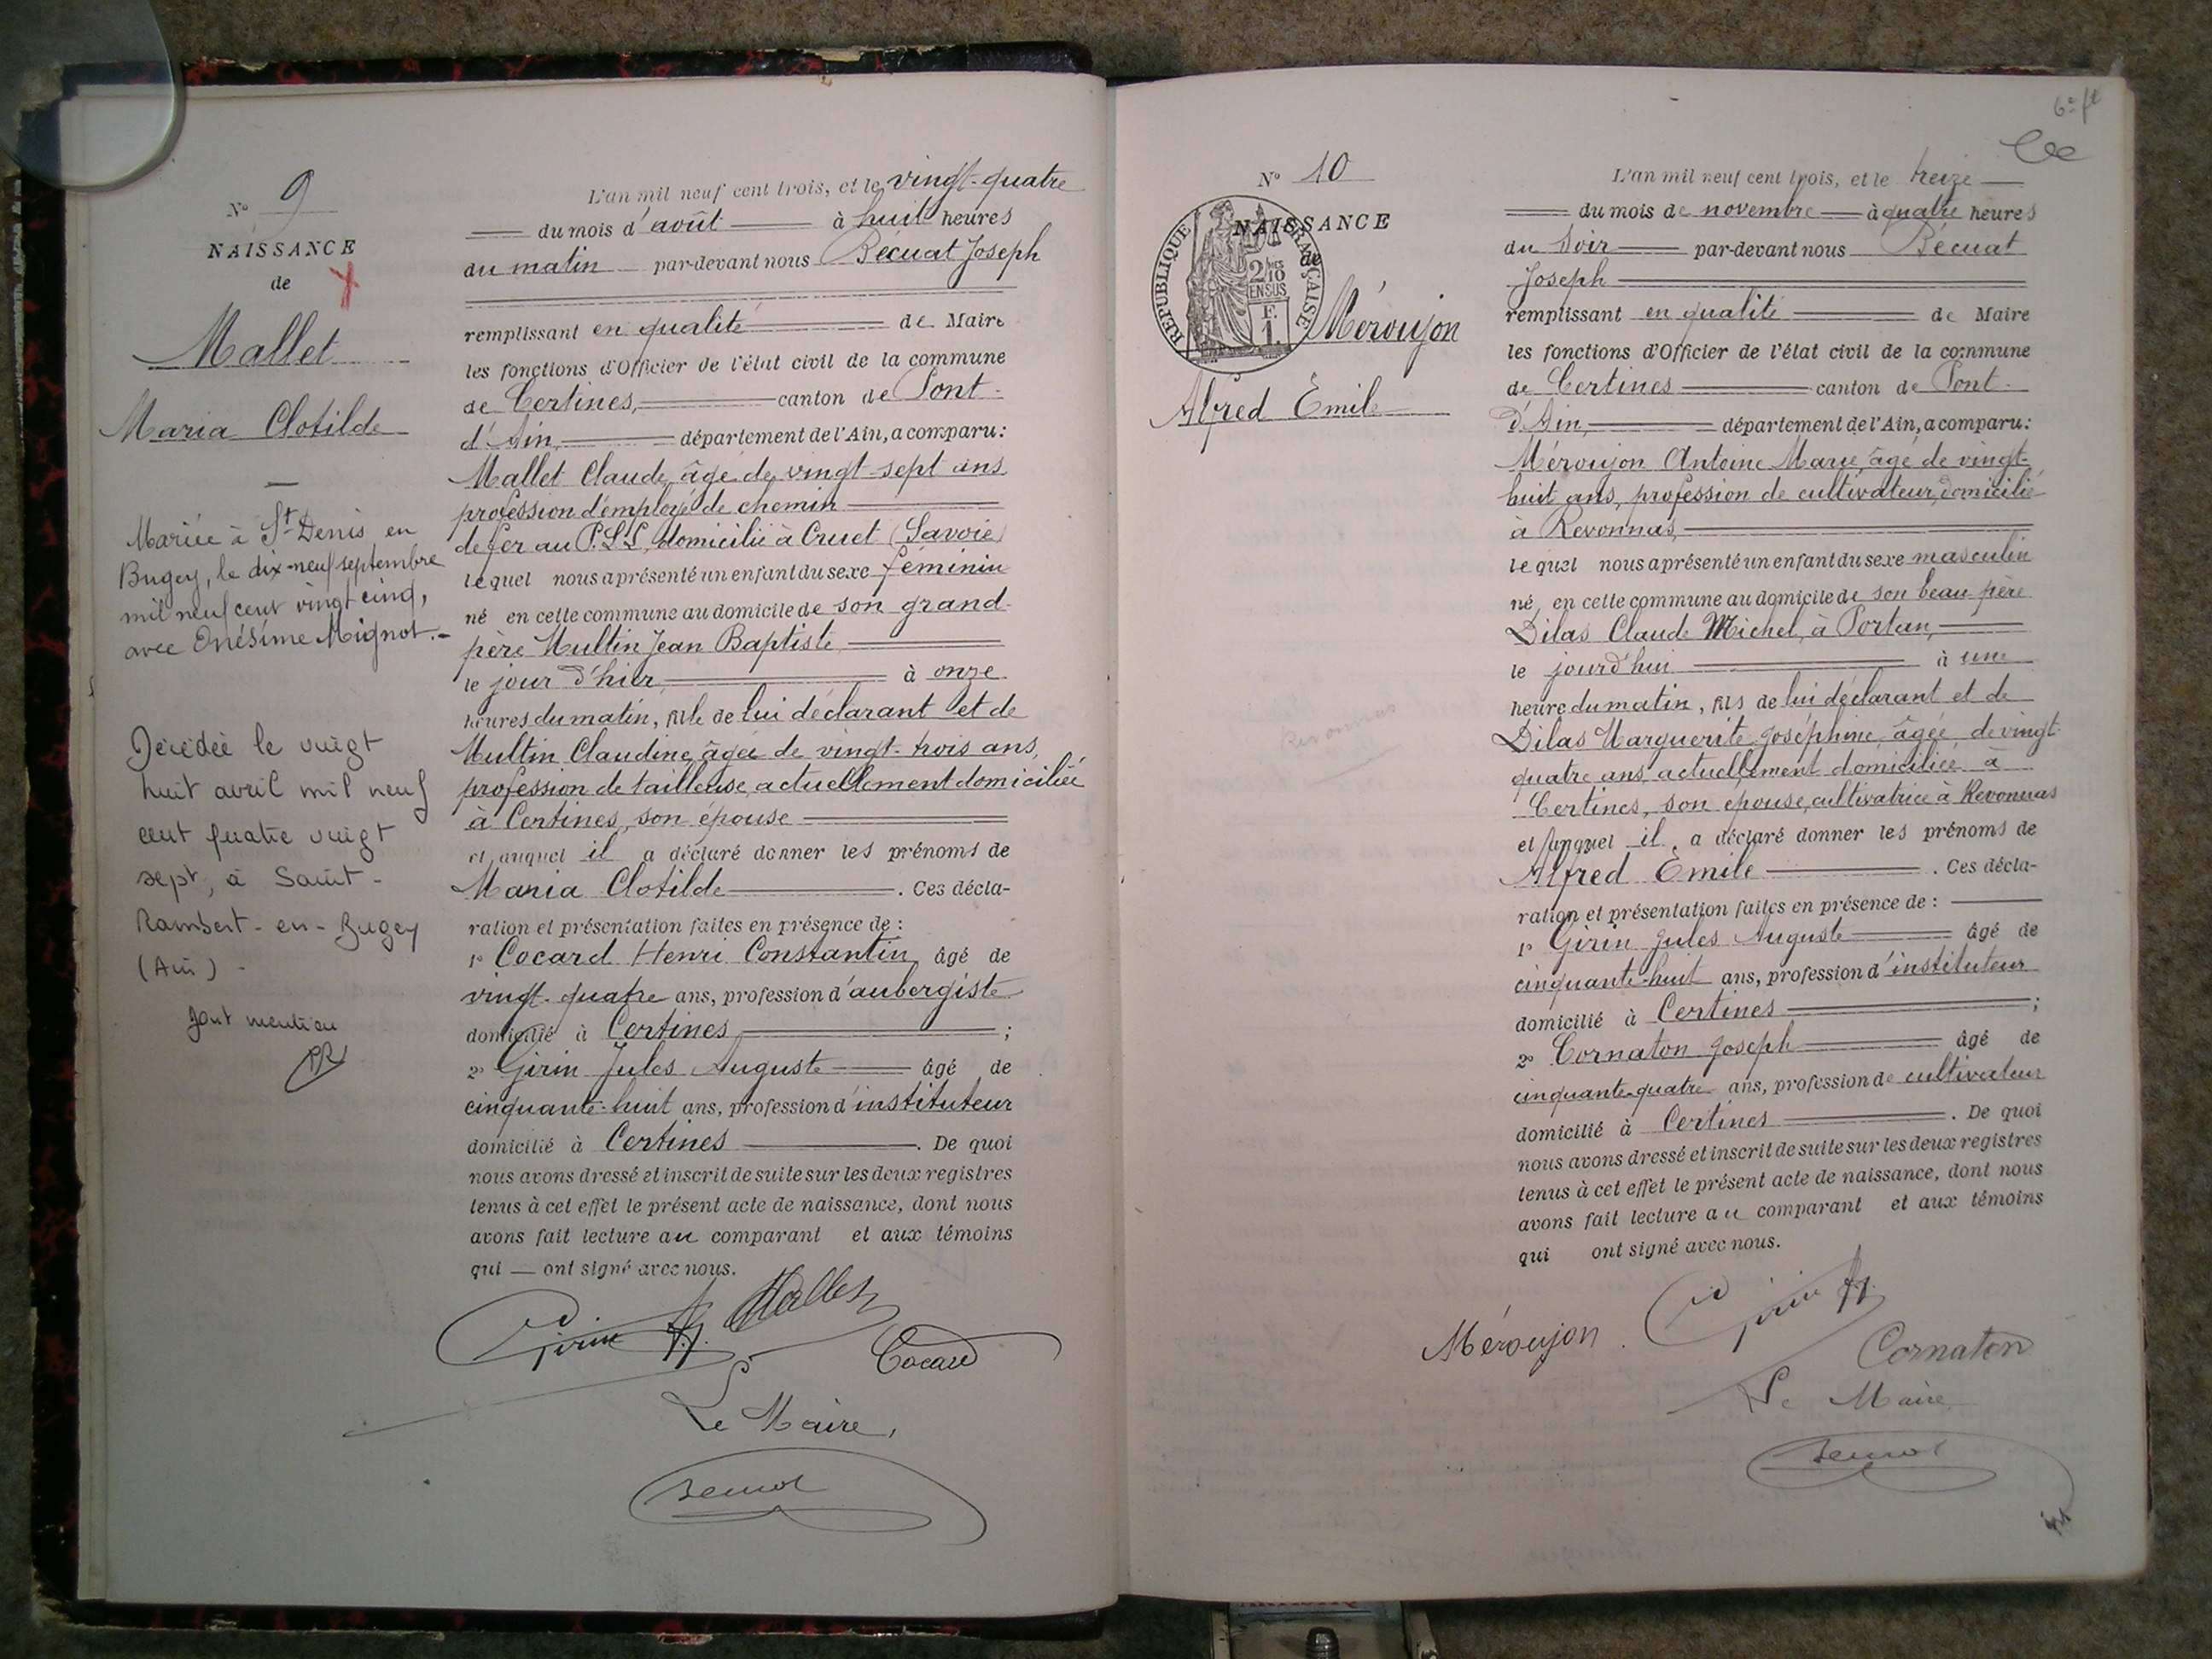 N° 9
NAISSANCE
de
Mallet
Maria Clotilde
Mariée à St Denis en
Bugey, le dix-neuf septembre
mil neuf cent vingt cinq,
avec Onésime Mignot.-
Décédée le vingt
huit avril mil neuf
cent quatre vingt
sept, à Saint-
Rambert-en-Bugey
(Ain) -
Dont mention
L'an mil neuf cent trois, et le vingt-quatre
du mois d'août à huit heures
du matin par-devant nous Bécuat Joseph
remplissant en qualité de Maire
les fonctions d'Officier de l'état civil de la commune
de Certines, canton de Pont-
d'Ain, département de l'Ain, a comparu:
Mallet Claude, âgé de vingt-sept ans
profession d'employé de chemin
de fer au P.L.L, domicilié à Cruet (Savoie)
lequel nous a présenté un enfant du sexe féminin
né en cette commune au domicile de son grand-
père Multin Jean Baptiste
le jour d'hier, à onze
heures du matin, fille de lui déclarant et de
Multin Claudine, âgée de vingt-trois ans,
profession de tailleuse, actuellement domiciliée
à Certines, son épouse
et auquel il a déclaré donner les prénoms de
Maria Clotilde. Ces décla-
ration et présentation faites en présence de :
1° Cocard Henri Constantin, âgé de
vingt-quatre ans, profession d'aubergiste
domicilié à Certines, ;
2° Girin Jules Auguste âgé de
cinquante-huit ans, profession d'instituteur
domicilié à Certines. De quoi
nous avons dressé et inscrit de suite sur les deux registres
tenus à cet effet le présent acte de naissance, dont nous
avons fait lecture au comparant et aux témoins
qui — ont signé avec nous.
Girin Mallet
Cocard
Le Maire,
6e ft
N° 10
NAISSANCE
de
RÉPUBLIQUE FRANÇAISE
2/10
EN SUS
F.
1.
Méroujon
Alfred Emile
L'an mil neuf cent trois, et le treize
du mois de novembre à quatre heures
du soir par-devant nous Bécuat
Joseph
remplissant en qualité de Maire
les fonctions d'Officier de l'état civil de la commune
de Certines canton de Pont-
d'Ain, département de l'Ain, a comparu:
Méroujon Antoine Marie, âgé de vingt-
huit ans, profession de cultivateur, domicilié
à Revonnas,
lequel nous a présenté un enfant du sexe masculin
né, en cette commune au domicile de son beau-père
Dilas Claude Michel, à Portan,
le jourd'hui à une
heure du matin, fils de lui déclarant et de
Dilas Marguerite Joséphine, âgée de vingt-
quatre ans, actuellement domiciliée à
Certines, son épouse, cultivatrice à Revonnas
et auquel il a déclaré donner les prénoms de
Alfred Emile. Ces décla-
ration et présentation faites en présence de :
1° Girin Jules Auguste âgé de
cinquante-huit ans, profession d'instituteur
domicilié à Certines ;
2° Cornaton Joseph âgé de
cinquante-quatre ans, profession de cultivateur
domicilié à Certines. De quoi
nous avons dressé et inscrit de suite sur les deux registres
tenus à cet effet le présent acte de naissance, dont nous
avons fait lecture au comparant et aux témoins
qui ont signé avec nous.
Méroujon Girin
Cornaton
Le Maire